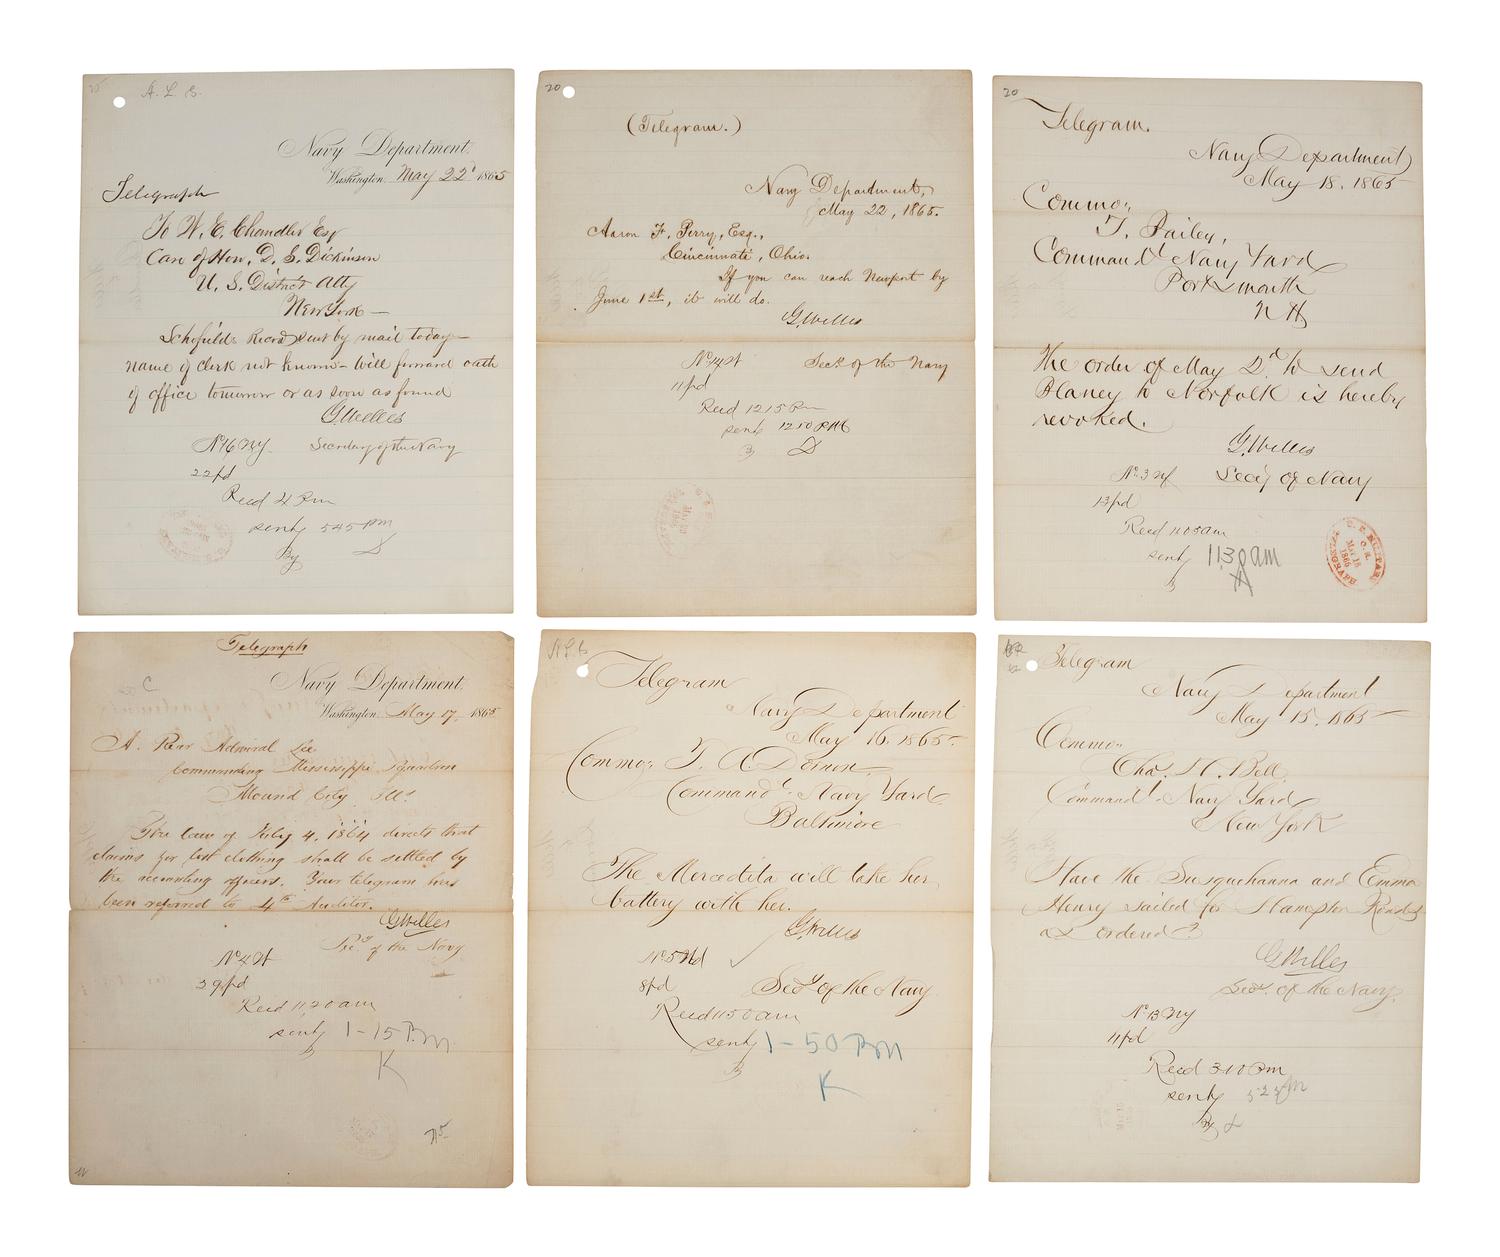 A. L. S.
Navy Department,
Washington, May 22d 1865
Telegraph
To W. E. Chandler Esq
Care of Hon. D. S. Dickinson
U. S. District Atty
New York —
Schofields Record sent by mail today —
name of clerk not known — Will forward oath
of office tomorrow or as soon as found
G Welles
No 16 NY. Secretary of the Navy
22 pd
Recd 4 Pm
sent 545 pm
By
20
(Telegram.)
Navy Department,
May 22, 1865.
Aaron F. Perry, Esq.,
Cincinnati, Ohio.
If you can reach Newport by
June 1st, it will do.
G Welles
Secy of the Navy
11 pd
Recd 1215 Pm
sent 1250 PM
20
Telegram.
Navy Department
May 18. 1865
Commo:
T. Bailey,
Commandt Navy Yard
Portsmouth
N H
The order of May 2d to send
Blaney to Norfolk is hereby
revoked.
G Welles
Secy of Navy
13 pd
Recd 1105 am
sent 1130 am
U. S. MILITARY
TELEGRAPH
MAY 18
1865
Telegraph
Navy Department,
Washington, May 17, 1865
A. Rear Admiral Lee
Commanding Mississippi Squadron
Mound City Ills.
The law of July 4, 1864 directs that
claims for lost clothing shall be settled by
the accounting officers. Your telegram has
been referred to 4th Auditor.
G Welles
Secy of the Navy
29 pd
Recd 11,20 am
sent 1-15 P.m.
K
Telegram
Navy Department
May 16. 1865.
Commo: T. A. Dornin
Commandt. Navy Yard
Baltimore
The Mercedita will take her
battery with her.
G Welles
8 pd
Secy of the Navy
Recd 1150 am
sent 1-50 Pm
K
Telegram
Navy Department
May 15. 1865
Commo:
Chas. H. Bell,
Commandt. Navy Yard
New York
Have the Susquehanna and Emma
Henry sailed for Hampton Roads
as ordered?
G Welles
Secy. of the Navy.
No 13 NY
11 pd
Recd 310 Pm
sent 525 Pm
By